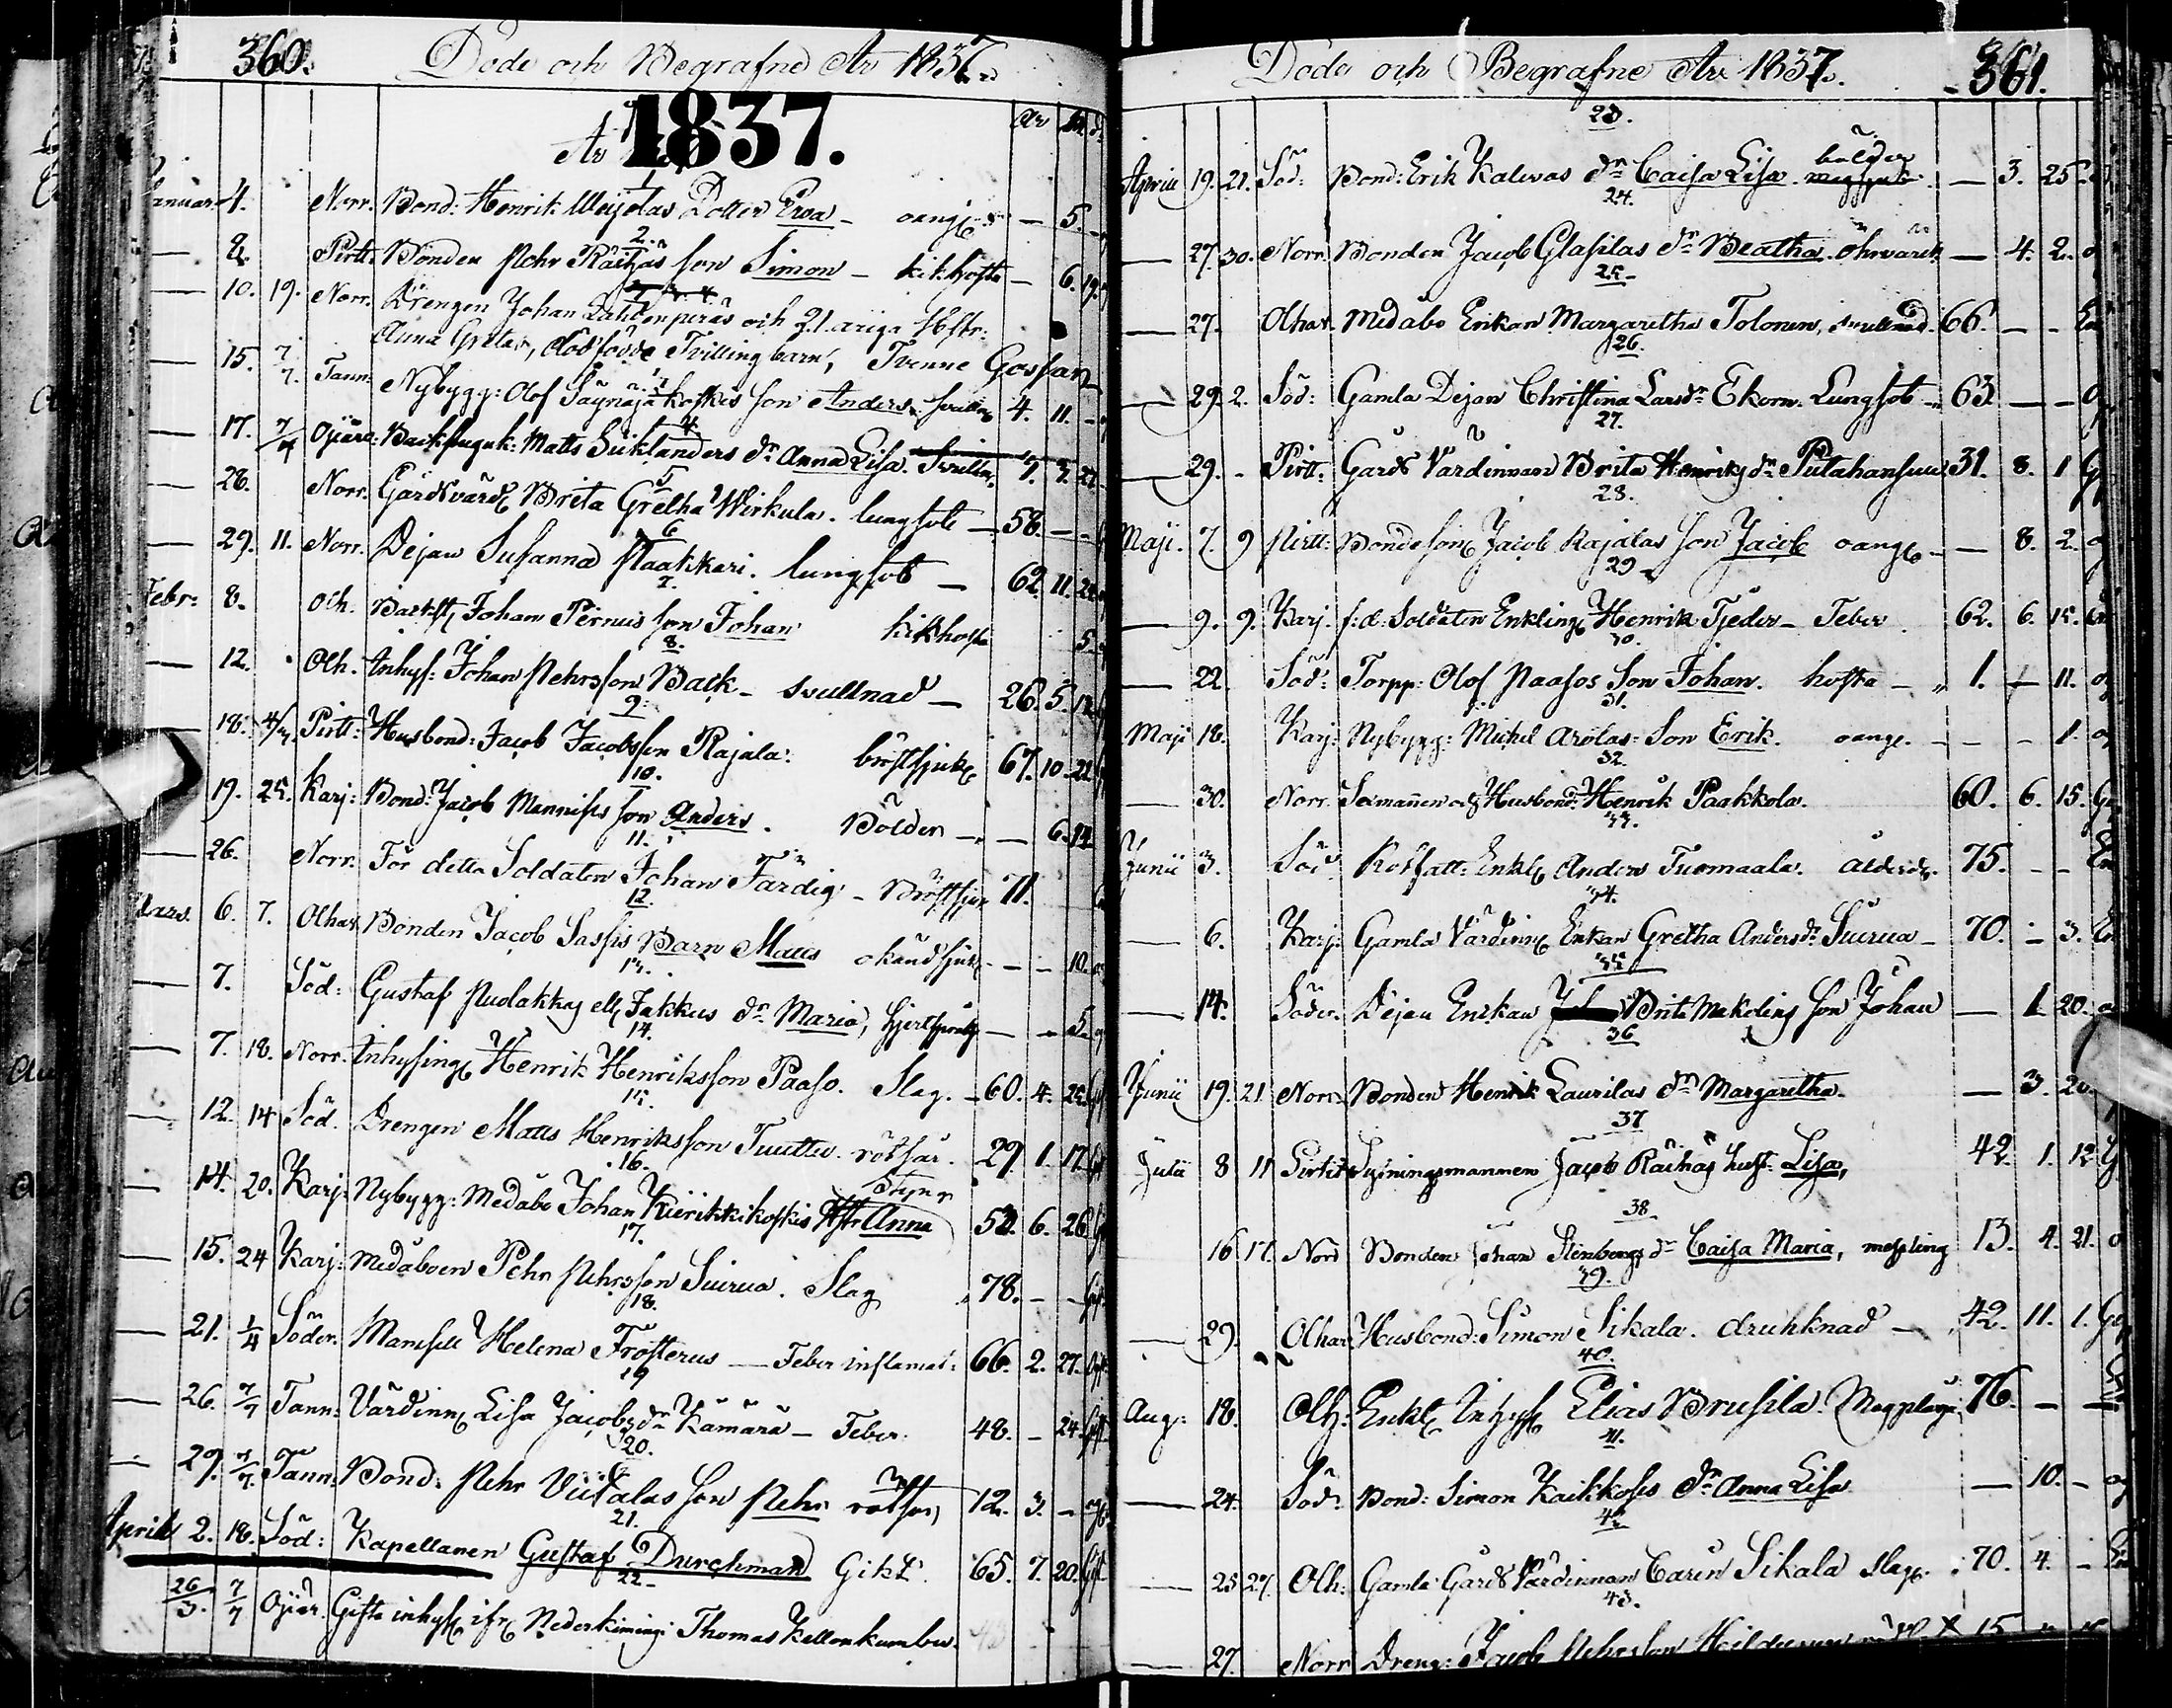 360. Döde och Begrafne År 1837.
År 1837.
År
1
Januar. 4. Norr. Bond: Henrik Weijolas Dotter Ewa - oangif: — 5.
2.
— 8. Pirtt: Bonden Pehr Räihäs Son Simon - kikhosta — 6. 19.
— 10. 19. Norr. Drengen Johan Lahdenperäs och 21 åriga Hstr:
Anna Gretas, dödfödde Tvilling barn, Tvenne Gossar
— 15. 7/7. Tann: Nybygg: Olof Säynäjäkoskis Son Anders 4. 11.
4.
— 17. Ojär: Matts Sucklanders dr Anna Lisa. 7. 7. 22
5
28. Norr. Gårdsvärd: Brita Gretha Wirkula. lungsot — 58. — -
6
— 29. 11. Norr. Dejan Susanna Haakkari. lungsot — 62. 11.
7.
Febr: 8. Olh. Johan Pernus Son Johan kikhosta 5.
8.
— 12. Olh. Inhys: Johan Pehrsson Back - svullnad — 26. 5.
9.
— 18. Pirtt: Husbond: Jacob Jacobsson Rajala: bröstsjuk: 67. 10. 22
10.
19. 25. Karj: Bond: Jacob Mannisis Son Anders. Bölder — — 6. 14
11.
— 26. Norr. För detta Soldaten Johan Färdig - Bröstsjuk 71.
12.
Mars. 6. 7. Olhav. Bonden Jacob Sassis Barn Matts okänd sjuk: — - 10.
13.
— 7. Söd: Gustaf Puolakkas ell: Jakkus dr Maria, — - 5.
14.
— 7. 18. Norr. Inhysing: Henrik Henriksson Paaso. Slag. - 60. 4. 25.
15.
— 12. 14 Söd. Drengen Matts Henriksson Tuuttu. rötsår. 29. 1. 17.
16.
— 14. 20. Karj: Nybygg: Medåbo Johan Kierikkikoskis Hstr Anna Styng 52. 6. 26
17.
— 15. 24 Karj: Medåboen Pehr Pehrsson Suirua. Slag 78. - -
18.
— 21. 1/4 Söder. Mamsell Helena Frosterus — Feber inflamat: 66. 2. 27. Ogift
19
— 26. 7/7 Tann: Värdinn: Lisa Jacobsdr Kämärä - Feber. 48. - 24. Gift
20.
— 29. 7/7. Tann: Bond: Pehr Viitalas Son Pehr rötsår, 12. 3. -
21.
Aprill 2. 18. Söd: Kapellanen Gustaf Durchman Gikt. 65. 7. 20. Gift
22.
26/3. 7/7 Ojär. Gifte inhys: ifr: Nederkiming: Thomas Kellonkumbu.
Döde och Begrafne År 1837. 361.
23.
Aprill 19. 21. Söd: Bond: Erik Kalevas dr Caisa Lisa. bölder — 3. 25.
24.
— 27. 30. Norr. Bonden Jacob Glasilas dr Beatha. öhrvärk — 4. 2.
25.
— 27. Olhav. Medåbo Enkan Margaretha Tolonen, svullnad. 66. — -
26.
— 29. 2. Söd: Gamla Dejan Christina Larsdr Ekorn. Lungsot - 63 — -
27.
— 29. - Pirtt: Gårds Värdinnan Brita Henriksdr Putahansuu 31. 8. 1
28.
Maji. 7. 9 Pirtt: Bondeson: Jacob Rajalas Son Jacob oang: — 8. 2.
29
— 9. 9. Karj. f:d: Soldaten Enkling: Henrik Tjeder - Feber. 62. 6. 15.
30.
— 22. Söd: Torpp: Olof Paasos Son Johan. hosta - 1. — 11.
31.
Maji 18. Karj: Nybygg: Michel Arolas Son Erik. oang. - - - 1.
32.
— 30. Norr. Seimannen och Husbond: Henrik Paakkola. 60. 6. 15.
33.
Junii 3. Söd. Rotfatt: Enkl: Anders Tuomaala. ålderd: 75. - -
34.
— 6. Karj: Gamla Värdinn: Enkan Gretha Andersdr Suirua - 70. - 3.
35
— 14. Söder. Dejan Enkan Brita Mekelins Son Johan — 1. 20.
36
Junii 19. 21. Norr. Bonden Henrik Laurilas dr Margaretha. — 3. 20.
37
Julii 8 11 Pirtt: Syningsmannen Jacob Räihäs hust: Lisa, 42. 1. 12
38
16 17. Nord Bonden Johan Stenbergs dr Caisa Maria, messling 13. 4. 21.
39.
— 29. Olhav. Husbond: Simon Sikala. druhknad — 42. 11. 1.
40.
Aug: 18. Olh: Enkl: Inhys: Elias Brusila. Magplåga 76. - -
41.
— 24. Söd. Bond: Simon Kaikkosis dr Anna Lisa — 10. -
42
— 25 27. Olh: Gamla Gårds Värdinnan Carin Sikala slag. 70. 4. -
43.
— 27. Norr Dreng: Jacob Pehrsson 15